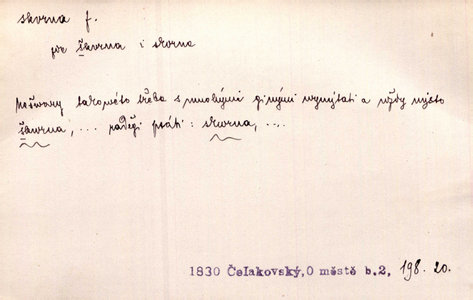 skorna f.
jde škorna i skorna
takowéto třeba s mnohými ginými wymýtati a wždy mjsto
škorna, ... raděgi psáti: skorna, ...
1830 Čelakovský, O městě b.2, 198. 20.